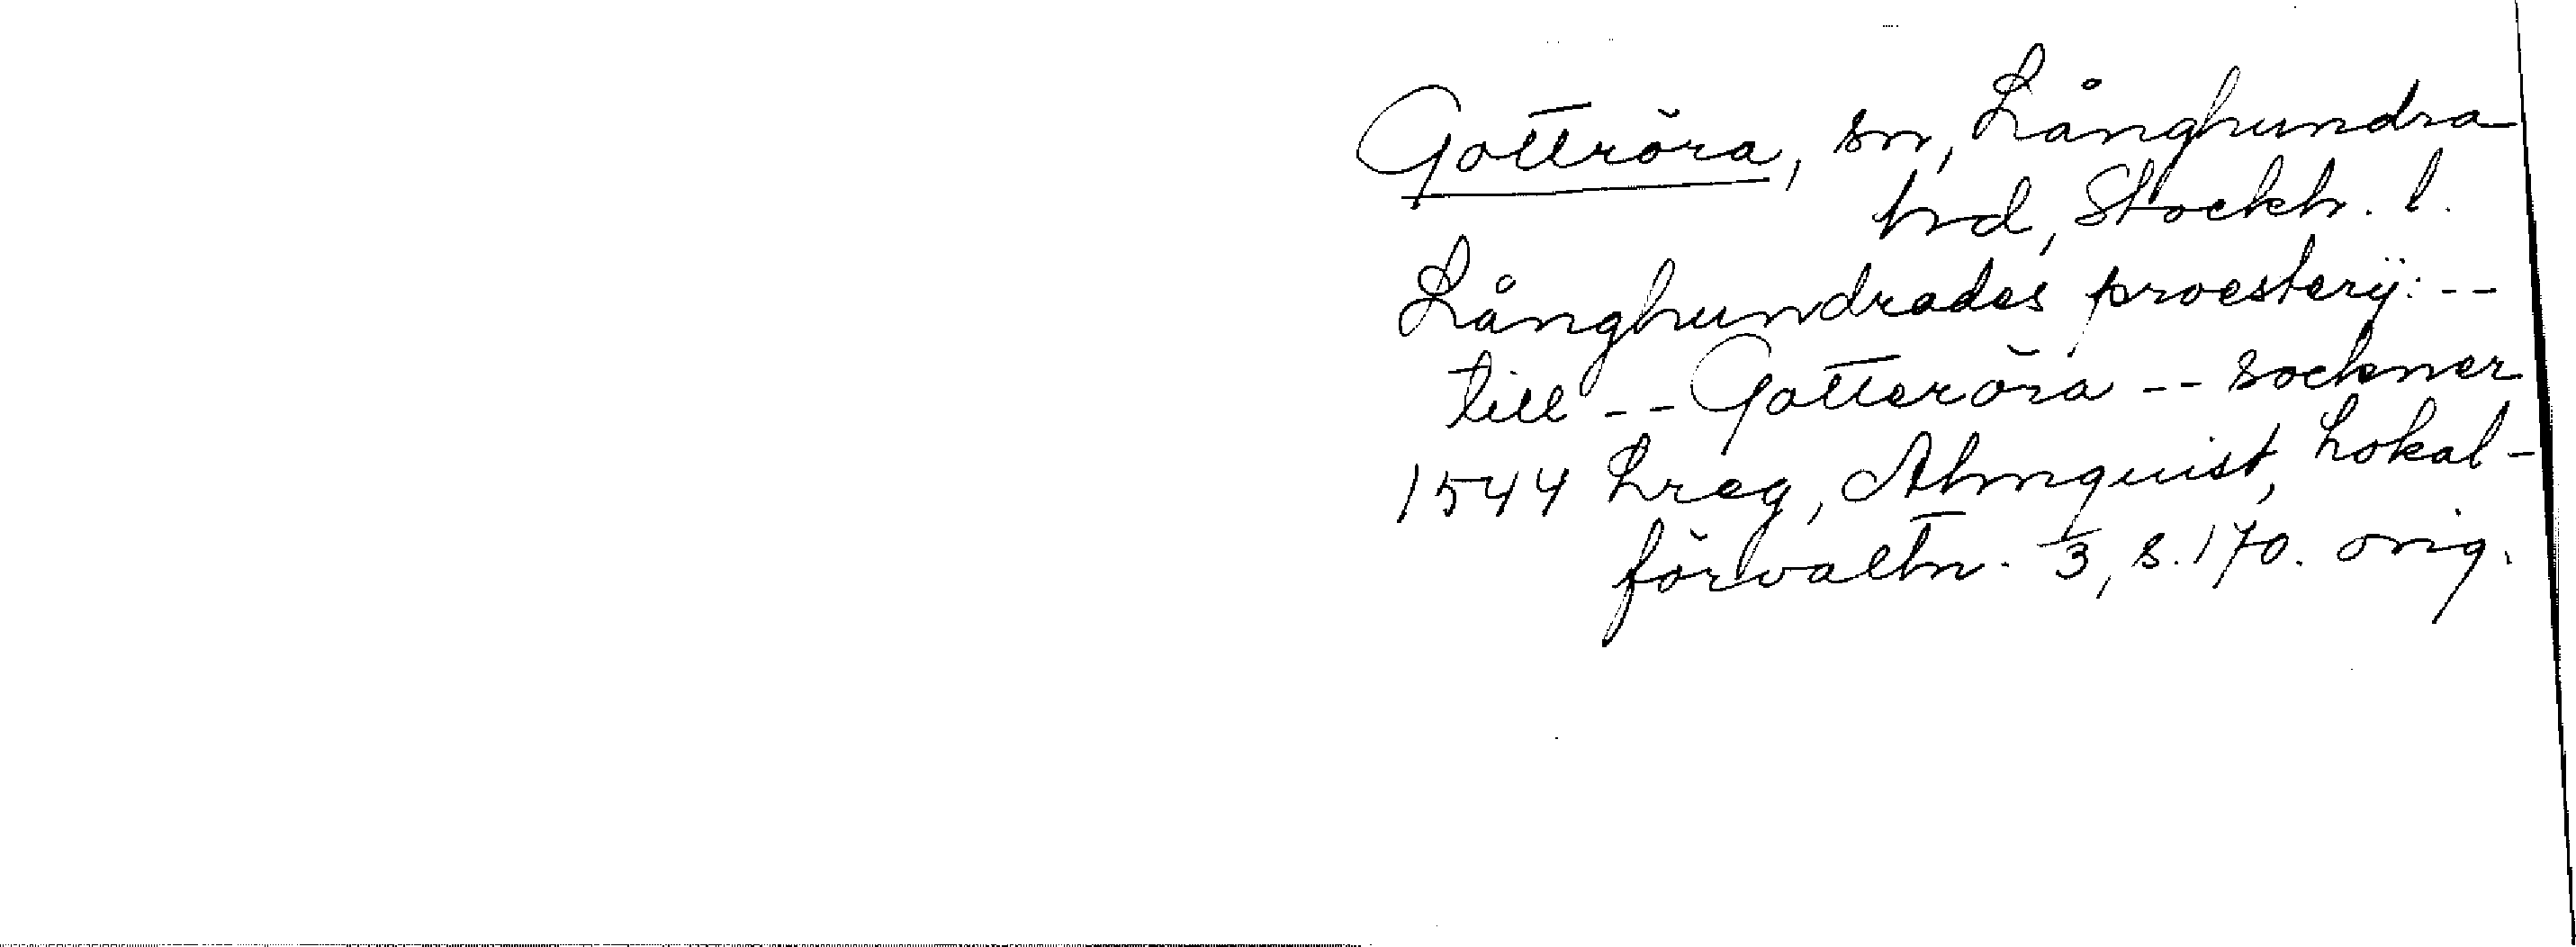 Gottröra, sn, Långhundra
hd, Stockh. l.
Långhundrades proesterij: --
till -- Gotteröra -- sockner
1544 Lreg, Almquist, Lokal-
förvaltn. 1/3, s. 170. orig.